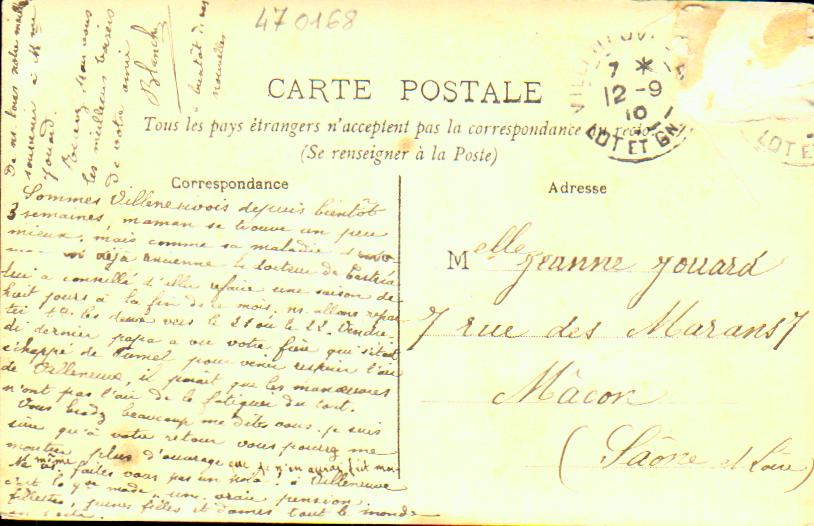 470168
De ns. tous notre meilleur
souvenir à Mme
Jouard.
Recevez, mon vous
les meilleurs baisers
de votre amie
Blanche
à bientôt de vos
nouvelles
CARTE POSTALE
7 *
12-9
10
LOT ET GNE
LOT ET
Tous les pays étrangers n'acceptent pas la correspondance au recto.
(Se renseigner à la Poste)
Correspondance
Adresse
Sommes Villeneuvois depuis bientôt
3 semaines, maman se trouve un peu
mieux, mais comme sa maladie
déjà ancienne le docteur de
lui a conseillé d'elle refaire une saison de
huit jours à la fin de ce mois, ns. allons repar-
tir ts. les deux vers le 21 ou le 22. Vendre-
di dernier papa a vu votre frère qui s'était
échappé de Fumel pour venir respirer l'air
de Villeneuve, il paraît que les manoeuvres
n'ont pas l'air de le fatiguer du tout.
Vous brodez beaucoup me dites vous. je suis
sûre qu'à votre retour vous pourrez me
montrer plus d'ouvrage que je n'en aurai fait moi-
même. faites vous pas un à Villeneuve
c'est la gde mode, une vraie pension.
fillettes, jeunes filles et dames tout le monde
Melle Jeanne Jouard
7 rue des Marans 7
Mâcon
(Saône et Loire)